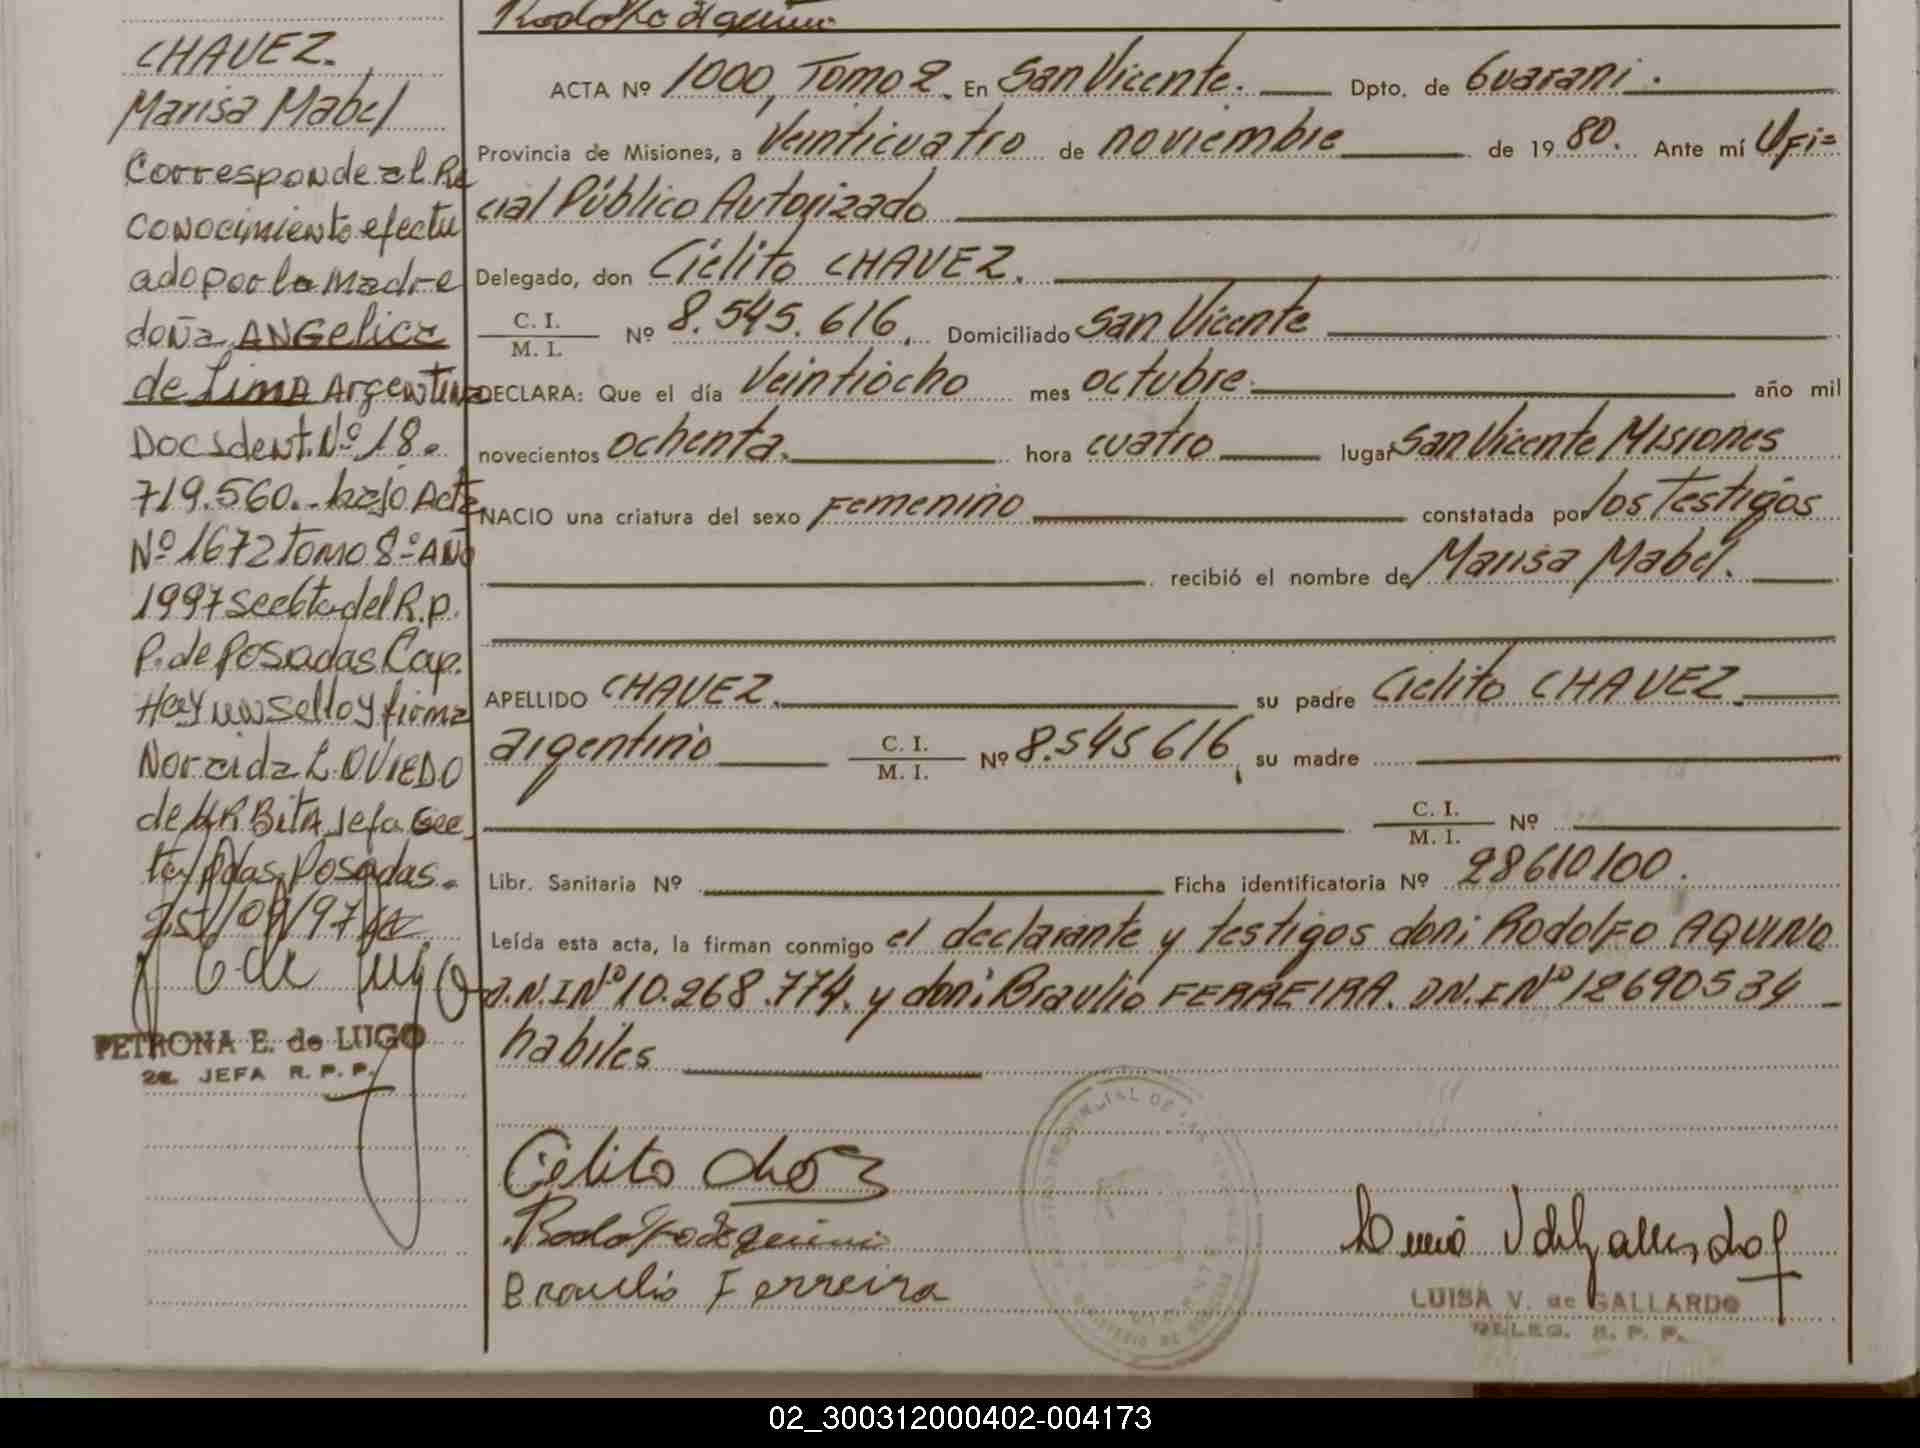 Rodolfo Aquino
CHAVEZ.
Marisa Mabel
Corresponde al Re
conocimiento efectu
ado por la Madre
doña ANGelica
de Lima Argentina
Doc Ident. Nº 18.
719.560.. bajo Acta
Nº 1672 Tomo 8º Año
1997 Seccta del R.p.
P. de Posadas Cap.
Hay un Sello y firma
Noraida L. OVIEDO
de URBITA Jefa Sec
ta Pdas Posadas.
25/09/97
E. de Lugo
PETRONA E. de LUGO
2a. JEFA R. P. P.
ACTA Nº 1000, Tomo 2. En San Vicente. Dpto. de Guarani.
Provincia de Misiones, a Veinticuatro de noviembre de 1980. Ante mí Ofi=
cial Público Autorizado
Delegado, don Cielito CHAVEZ.
C. I.
M. I. Nº 8.545.616, Domiciliado San Vicente
DECLARA: Que el día Veintiocho mes octubre año mil
novecientos ochenta. hora cuatro lugar San Vicente Misiones
NACIO una criatura del sexo Femenino constatada por los Testigos
recibió el nombre de Marisa Mabel.
APELLIDO CHAVEZ. su padre Cielito CHAVEZ
argentino C. I.
M. I. Nº 8.545616, su madre
C. I.
M. I. Nº
Libr. Sanitaria Nº Ficha identificatoria Nº 28610100.
Leída esta acta, la firman conmigo el declarante y testigos don: Rodolfo AQUINO
D.N.I Nº 10.268.774. y don: Braulio FERREIRA. DN.I Nº 12690534
habiles
Cielito Chavez
Rodolfo Aquino
Braulio Ferreira
LUISA V. de GALLARDO
DELEG. R. P. P.
02_300312000402-004173